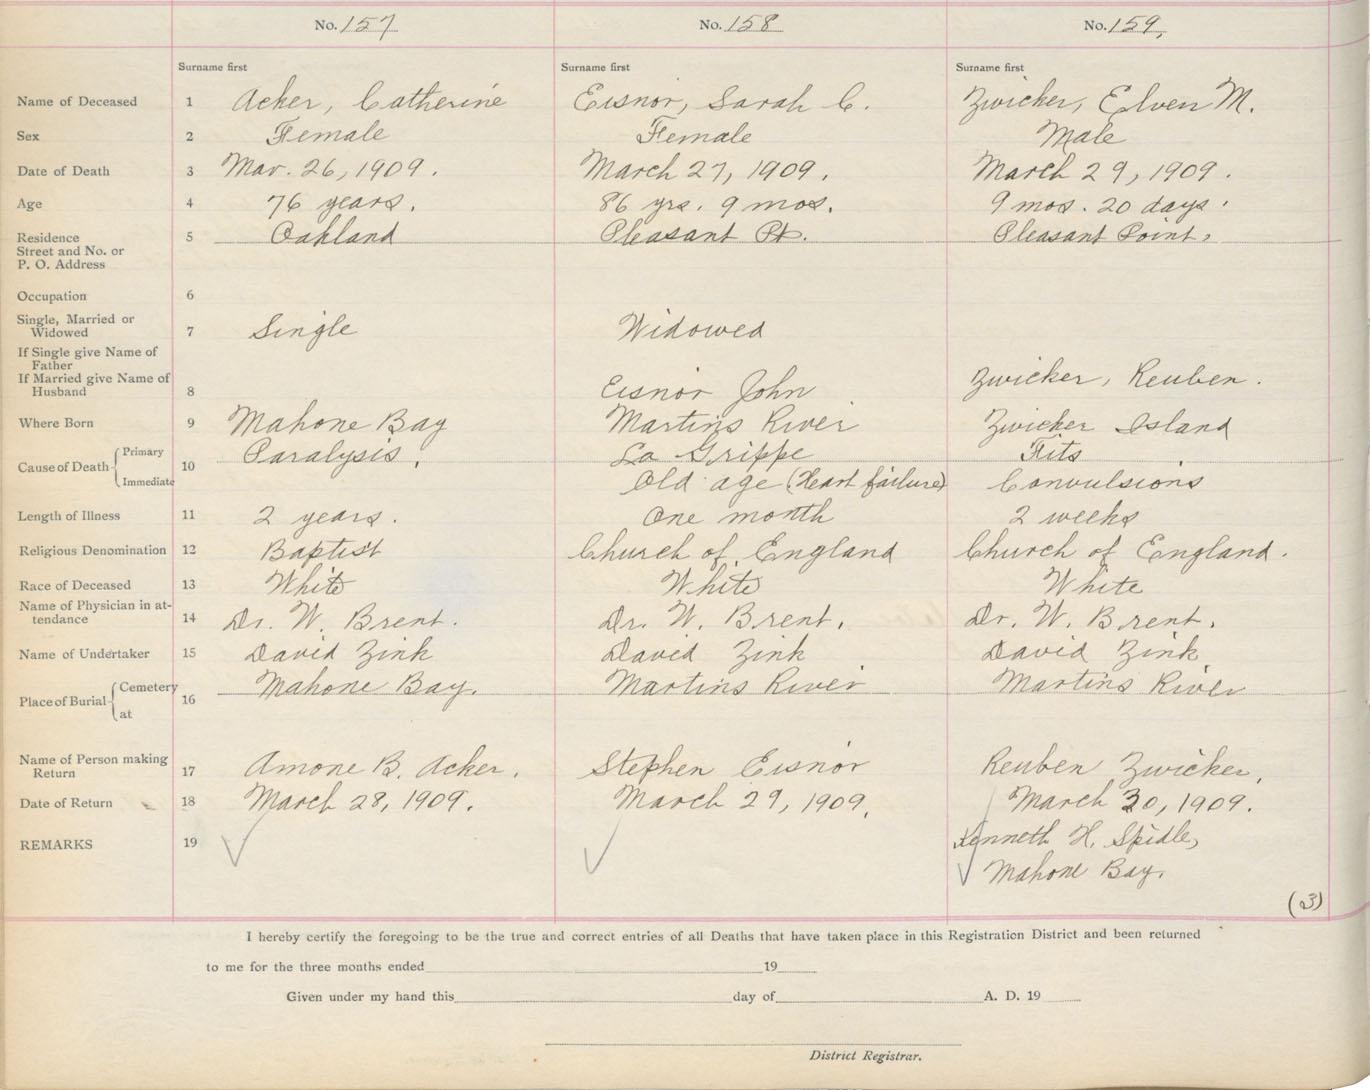 No. 157 No. 158 No. 159,
Surname first Surname first Surname first
Name of Deceased 1 Acker, Catherine Eisnor, Sarah C. Zwicker, Elven M.
Sex 2 Female Female Male
Date of Death 3 Mar. 26, 1909. March 27, 1909. March 29, 1909.
Age 4 76 years. 86 yrs. 9 mos. 9 mos. 20 days.
Residence 5 Oakland Pleasant Pt. Pleasant Point.
Street and No. or
P. O. Address
Occupation 6
Single, Married or
Widowed 7 Single Widowed
If Single give Name of
Father
If Married give Name of
Husband 8 Eisnor John Zwicker, Reuben.
Where Born 9 Mahone Bay Martins River Zwicker Island
Cause of Death Primary 10 Paralysis. La Grippe Fits
Immediate Old age (Heart failure) Convulsions
Length of Illness 11 2 years. One month 2 weeks
Religious Denomination 12 Baptist Church of England Church of England.
Race of Deceased 13 White White White
Name of Physician in at-
tendance 14 Dr. W. Brent. Dr. W. Brent. Dr. W. Brent.
Name of Undertaker 15 David Zink David Zink David Zink
Place of Burial Cemetery 16 Mahone Bay. Martins River Martins River
at
Name of Person making
Return 17 Amone B. Acker. Stephen Eisnor Reuben Zwicker.
Date of Return 18 March 28, 1909. March 29, 1909. March 30, 1909.
REMARKS 19 Kenneth H. Spidle,
Mahone Bay.
(3)
I hereby certify the foregoing to be the true and correct entries of all Deaths that have taken place in this Registration District and been returned
to me for the three months ended 19
Given under my hand this day of A. D. 19
District Registrar.